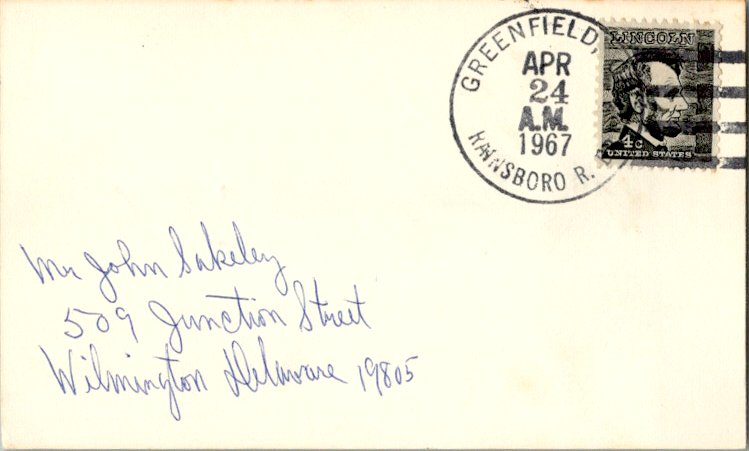 GREENFIELD,
APR
24
A.M.
1967
RAINSBORO R.
LINCOLN
4c
UNITED STATES
Mr John Sakeley
509 Junction Street
Wilmington Delaware 19805